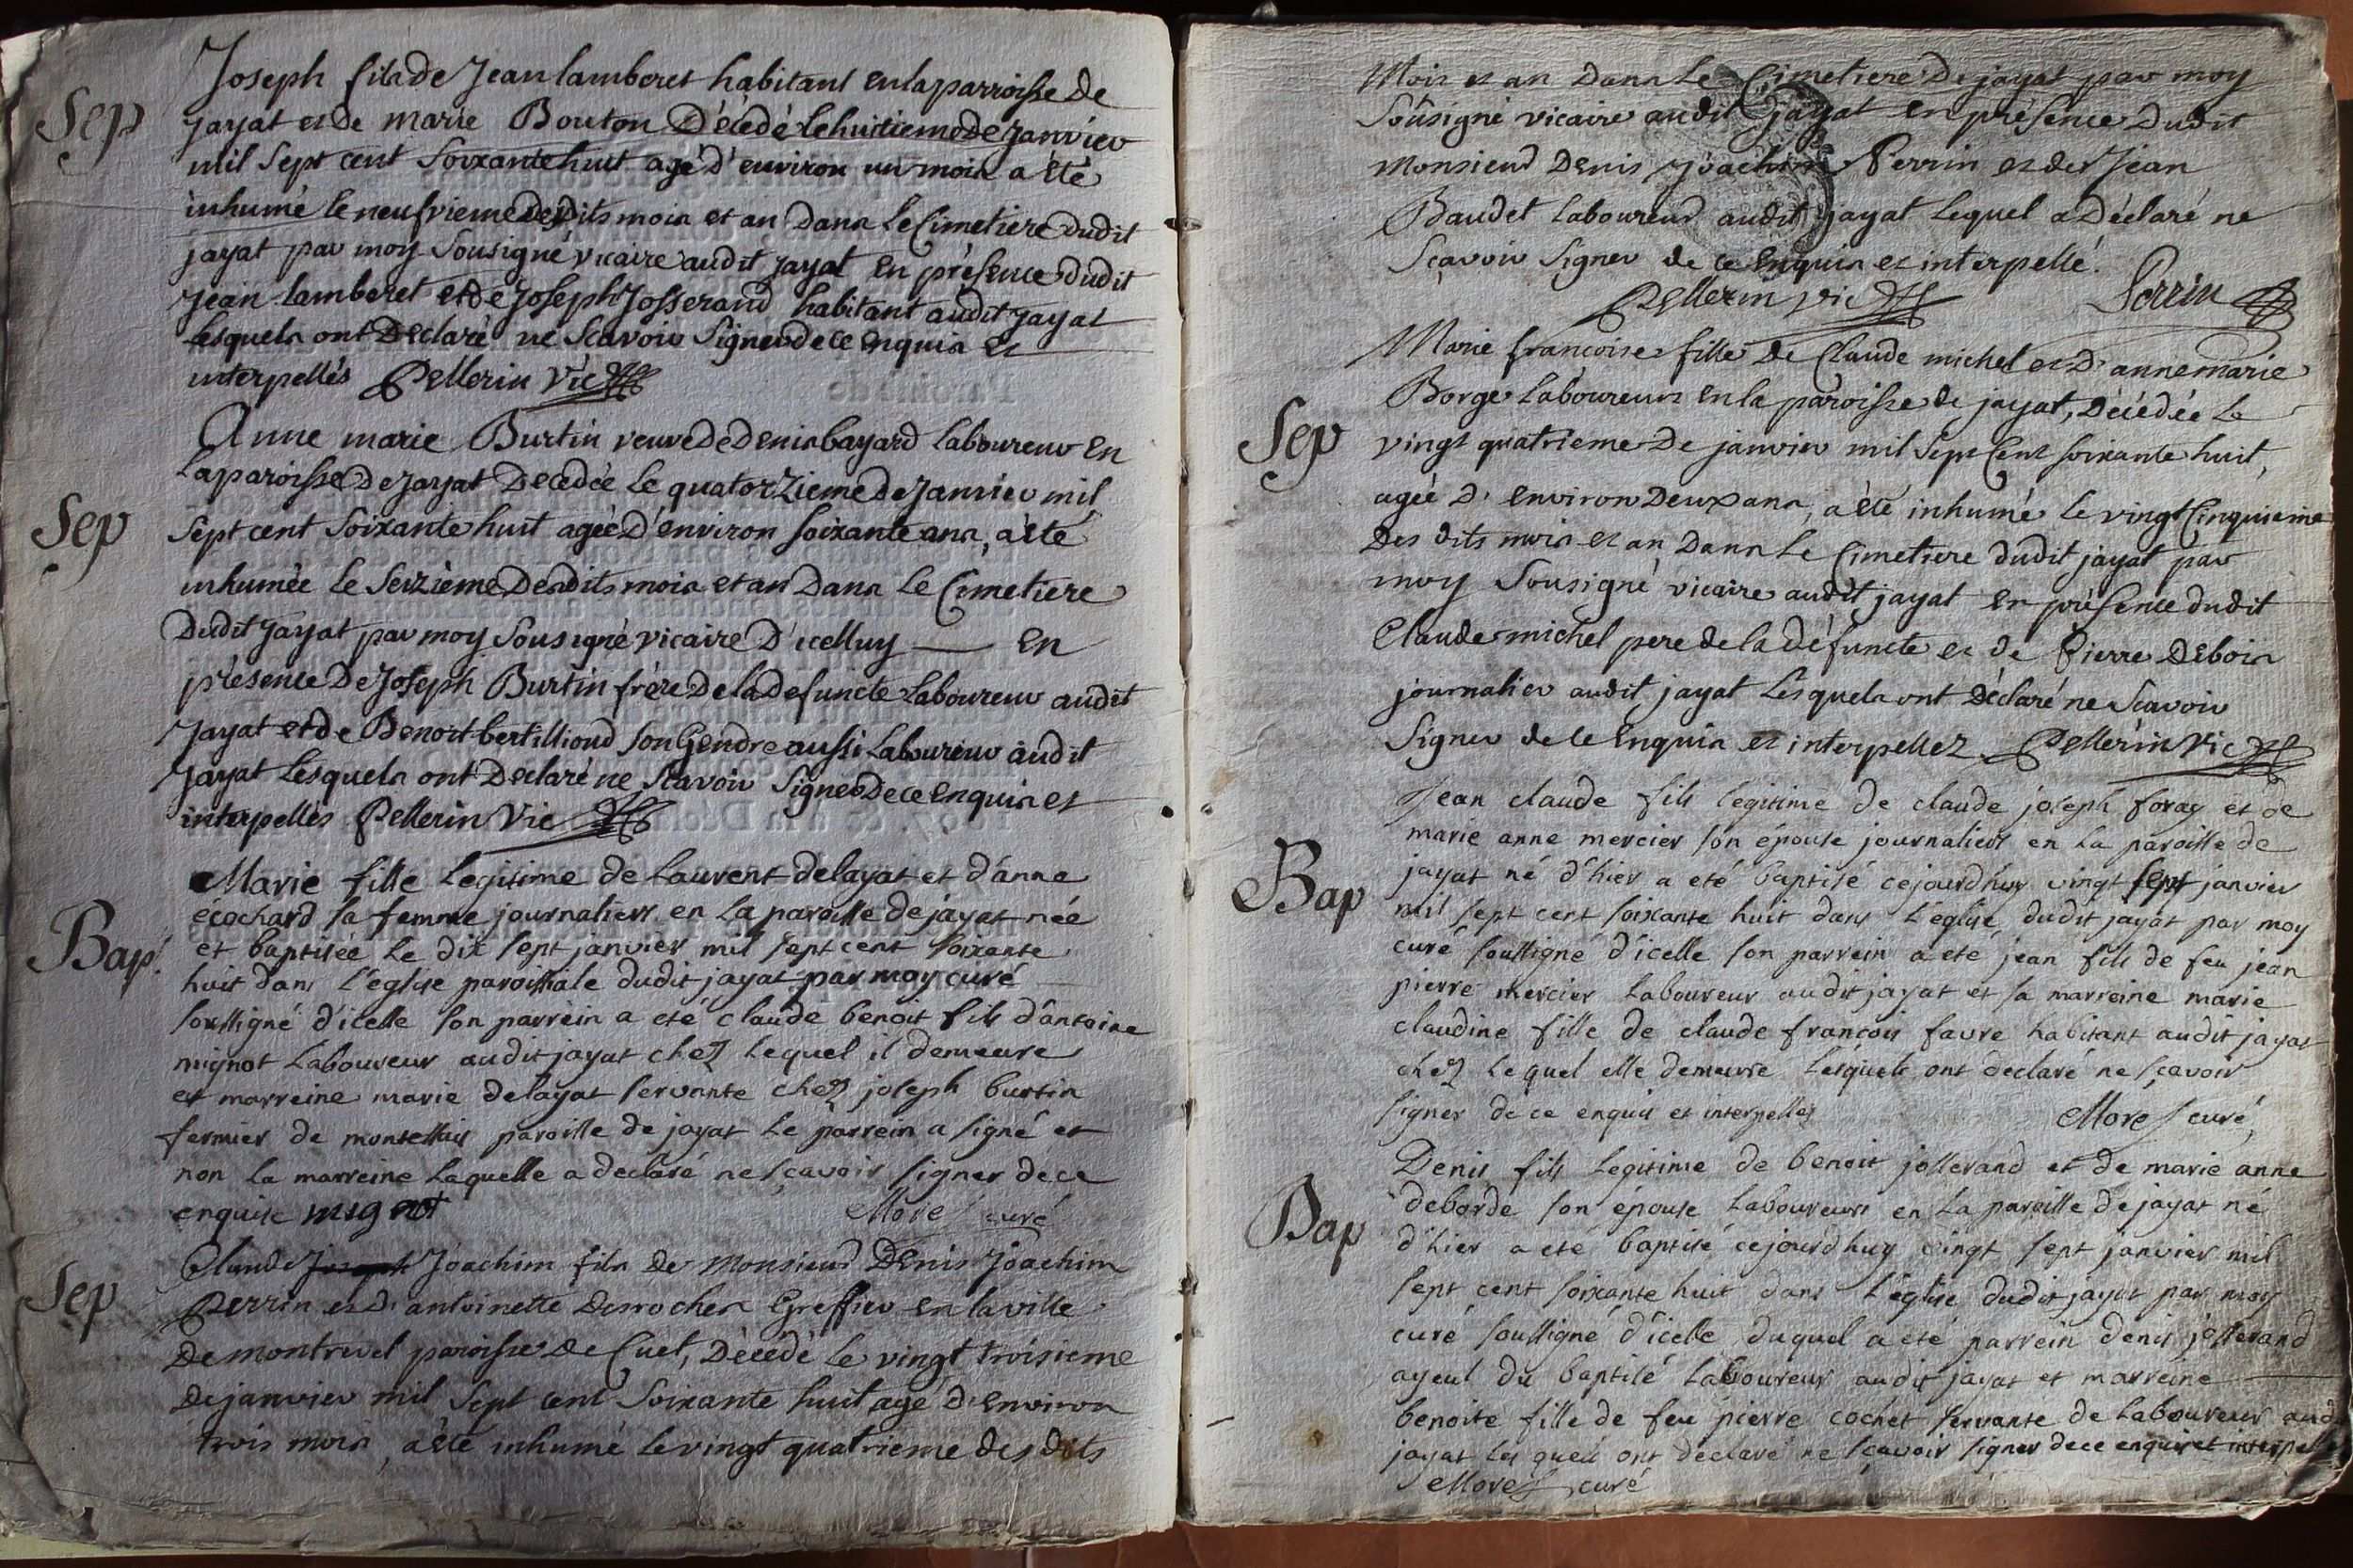 Joseph fils de Jean lamberet habitant en la parroisse de
Sep
jayat et de marie Bouton Décédé le huitieme de janvier
mil sept cent soixante huit agé d'environ un mois a été
inhumé le neufvieme desdits mois et an dans le Cimetiere dudit
jayat par moy sousigné vicaire audit jayat en présence dudit
jean lamberet et de joseph josserand habitant audit jayat
lesquels ont déclaré ne scavoir signer de ce enquis et
interpellés Pellerin vic
Anne marie Burtin veuve de denis bayard laboureur en
la paroisse de jayat Decedée le quatorzieme de janvier mil
Sep
sept cent soixante huit agée d'environ soixante ans, a été
inhumée le seizième desdits mois et an dans le Cimetiere
dudit jayat par moy sousigné vicaire d'icelluy — en
présence de joseph Burtin frère de la defuncte laboureur audit
jayat et de Benoit bertilliond son gendre aussi laboureur audit
jayat lesquels ont declaré ne scavoir signer de ce enquis et
interpellés Pellerin vic
Marie fille legitime de laurent delayat et d'anne
écochard sa femme journaliers en la paroisse de jayat née
Bap
et baptisée le dix sept janvier mil sept cent soixante
huit dans l'eglise paroissiale dudit jayat par moy curé
soussigné d'icelle son parrein a eté claude benoit fils d'antoine
mignot laboureur audit jayat chez lequel il demeure
et marreine marie delayat servante chez joseph burtin
fermier de paroisse de jayat le parrein a signé et
non la marreine laquelle a declaré ne sçavoir signer de ce
enquise mignot Moré curé
Claude joseph Joachim fils de Monsieur Denis Joachim
Sep
Perrin et d'antoinette Desrocher Greffier en la ville
de montrevel paroisse de Cuet, Décédé le vingt troisieme
de janvier mil sept cent soixante huit agé d'environ
trois mois, a été inhumé le vingt quatrieme des dits
Mois et an dans le Cimetiere de jayat par moy
soûsigné vicaire audit jayat en présence dudit
monsieur Denis Joachim Perrin et de Jean
Baudet laboureur audit jayat lequel a déclaré ne
sçavoir signer de ce enquis et interpellé.
Pellerin vic Perrin
Marie françoise fille de Claude michel et d'anne marie
Borge laboureurs en la paroisse de jayat, décédée le
Sep
vingt quatrieme de janvier mil sept cent soixante huit,
agée d'environ deux ans, a été inhumé le vingt cinquieme
des dits mois et an dans le cimetiere dudit jayat par
moy sousigné vicaire audit jayat en présence dudit
Claude michel pere de la défuncte et de Pierre Debois
journalier audit jayat lesquels ont déclaré ne scavoir
signer de ce enquis et interpellez Pellerin vic
Jean claude fils legitime de claude joseph foray et de
marie anne mercier son épouse journaliers en la paroisse de
Bap
jayat né d'hier a eté baptisé cejourd'huy vingt sept janvier
mil sept cent soixante huit dans l'eglise dudit jayat par moy
curé soussigné d'icelle son parrein a eté jean fils de feu jean
pierre mercier laboureur audit jayat et sa marreine marie
claudine fille de claude françois favre habitant audit jayat
chez lequel elle demeure lesquels ont declaré ne sçavoir
signer de ce enquis et interpellez Moré curé
Denis fils legitime de benoit josserand et de marie anne
Bap
deborde son épouse laboureurs en la paroisse de jayat né
d'hier a eté baptisé cejourd'huy vingt sept janvier mil
sept cent soixante huit dans l'eglise dudit jayat par moy
curé soussigné d'icelle duquel a eté parrein denis josserand
ayeul du baptisé laboureur audit jayat et marreine
benoite fille de feu pierre cochet servante de laboureur aud
jayat lesquels ont declaré ne sçavoir signer de ce enquis et
Moré curé